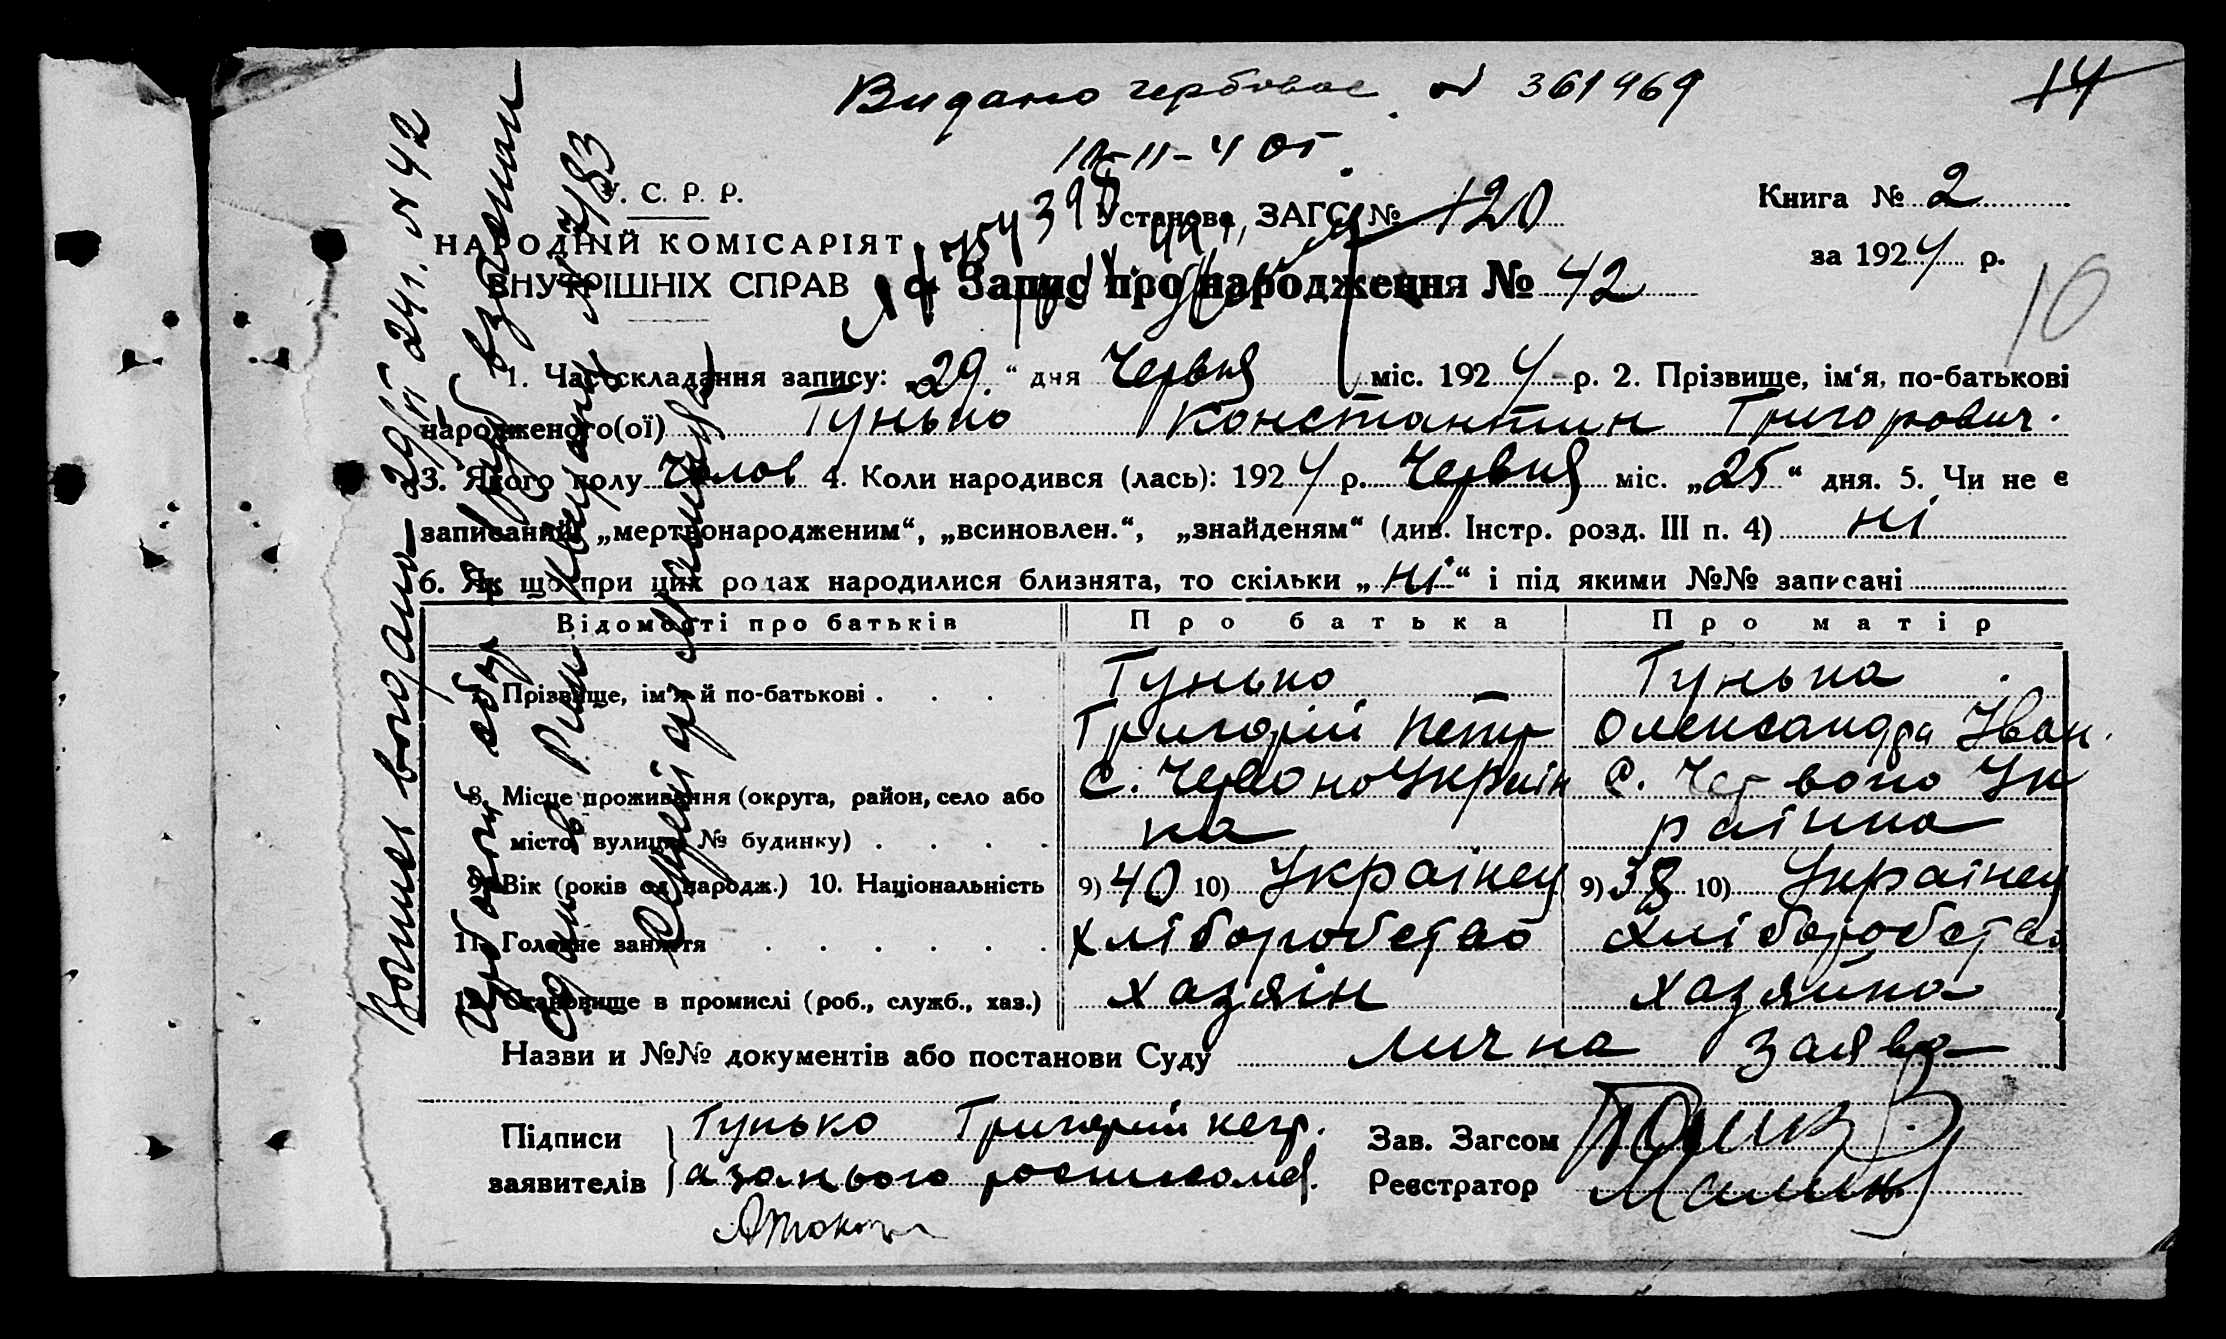 Видано гербове № 361969
14
У. С. Р. Р.
НАРОДНІЙ КОМІСАРІЯТ
ВНУТРІШНІХ СПРАВ
Установа, ЗАГС № 120
Книга № 2
за 1924 р.
Запис про народження № 42
10
1. Час складання запису: „29“ дня Червня міс. 1924 р. 2. Прізвище, ім‘я, по-батькові
народженого(ої) Гунько Константин Григорович.
3. Якого полу Чолов 4. Коли народився (лась): 1924 р. Червня міс. „25“ дня. 5. Чи не є
записаний „мертвонародженим“, „всиновлен.“, „знайденям“ (див. Інстр. розд. III п. 4) ні
6. Як що при цих родах народилися близнята, то скільки „ні“ і під якими №№ записані
Відомості про батьків Про батька Про матір
7. Прізвище, ім‘я й по-батькові . . . Гунько Гунька
Григорій Петр Олександра Іван.
8. Місце проживання (округа, район, село або С. Червоно Украін С. Червоно Ук
місто, вулиця, № будинку) . . . . ка раінка
9. Вік (років од народж.) 10. Національність 9) 40 10) Украінец 9) 38 10) Украінец
11. Головне заняття . . . . . . Хліборобство Хліборобство
12. Становище в промислі (роб., служб., хаз.) Хазяін Хазяйка
Назви и №№ документів або постанови Суду Лична заява
Підписи
заявителів
Гунько Григорій петр.
Зав. Загсом
Реєстратор